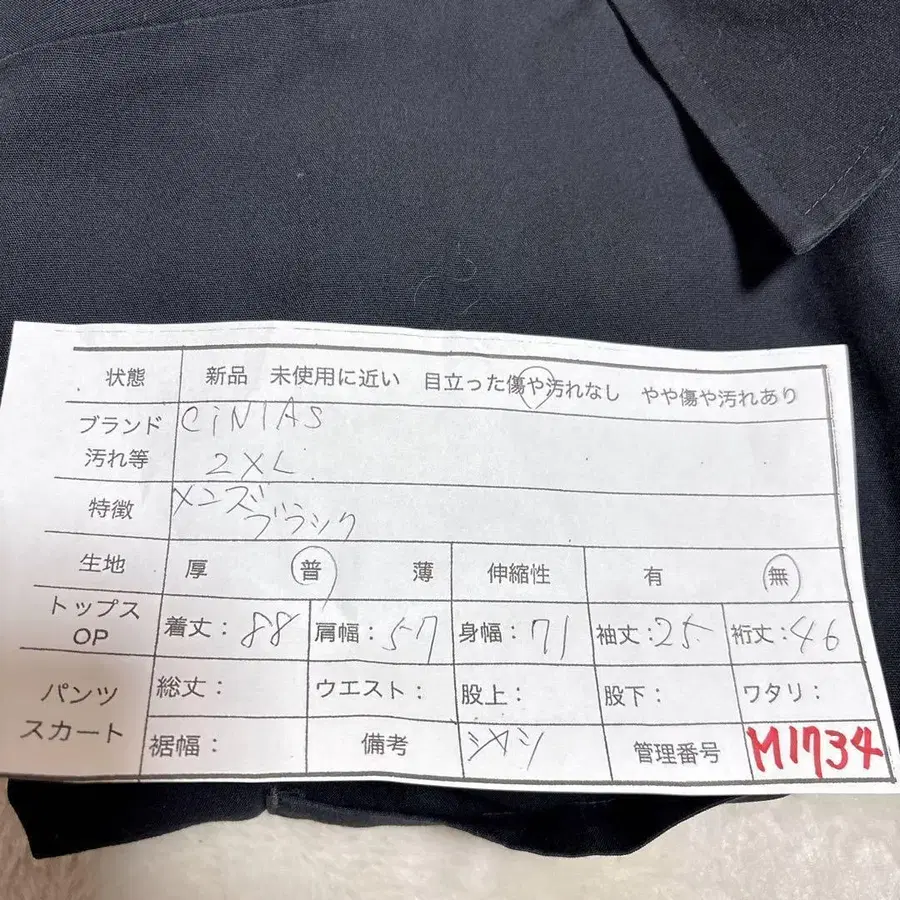 状態 新品 未使用に近い 目立った傷や汚れなし やや傷や汚れあり
ブランド CiNIAS
汚れ等 2XL
特徴 メンズ
ブラック
生地 厚 普 薄 伸縮性 有 無
トップス
OP 着丈：88 肩幅：57 身幅：71 袖丈：25 裄丈：46
パンツ
スカート 総丈： ウエスト： 股上： 股下： ワタリ：
裾幅： 備考 管理番号 M1734